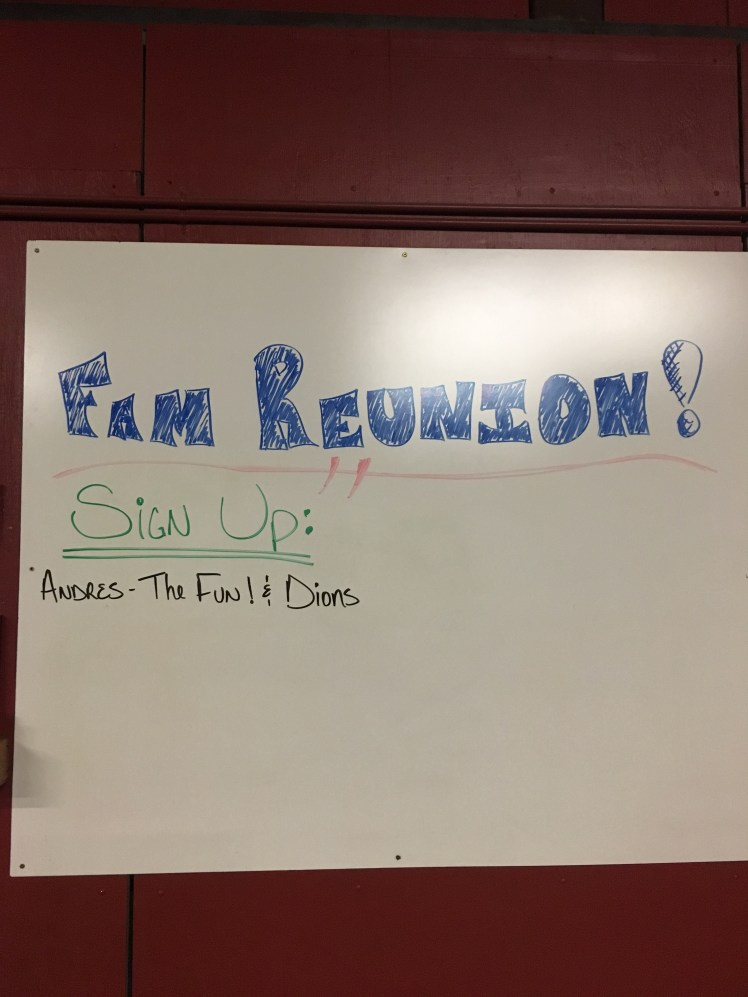 FAM REUNION!
SIGN UP:
ANDRES - The FUN! & Dions